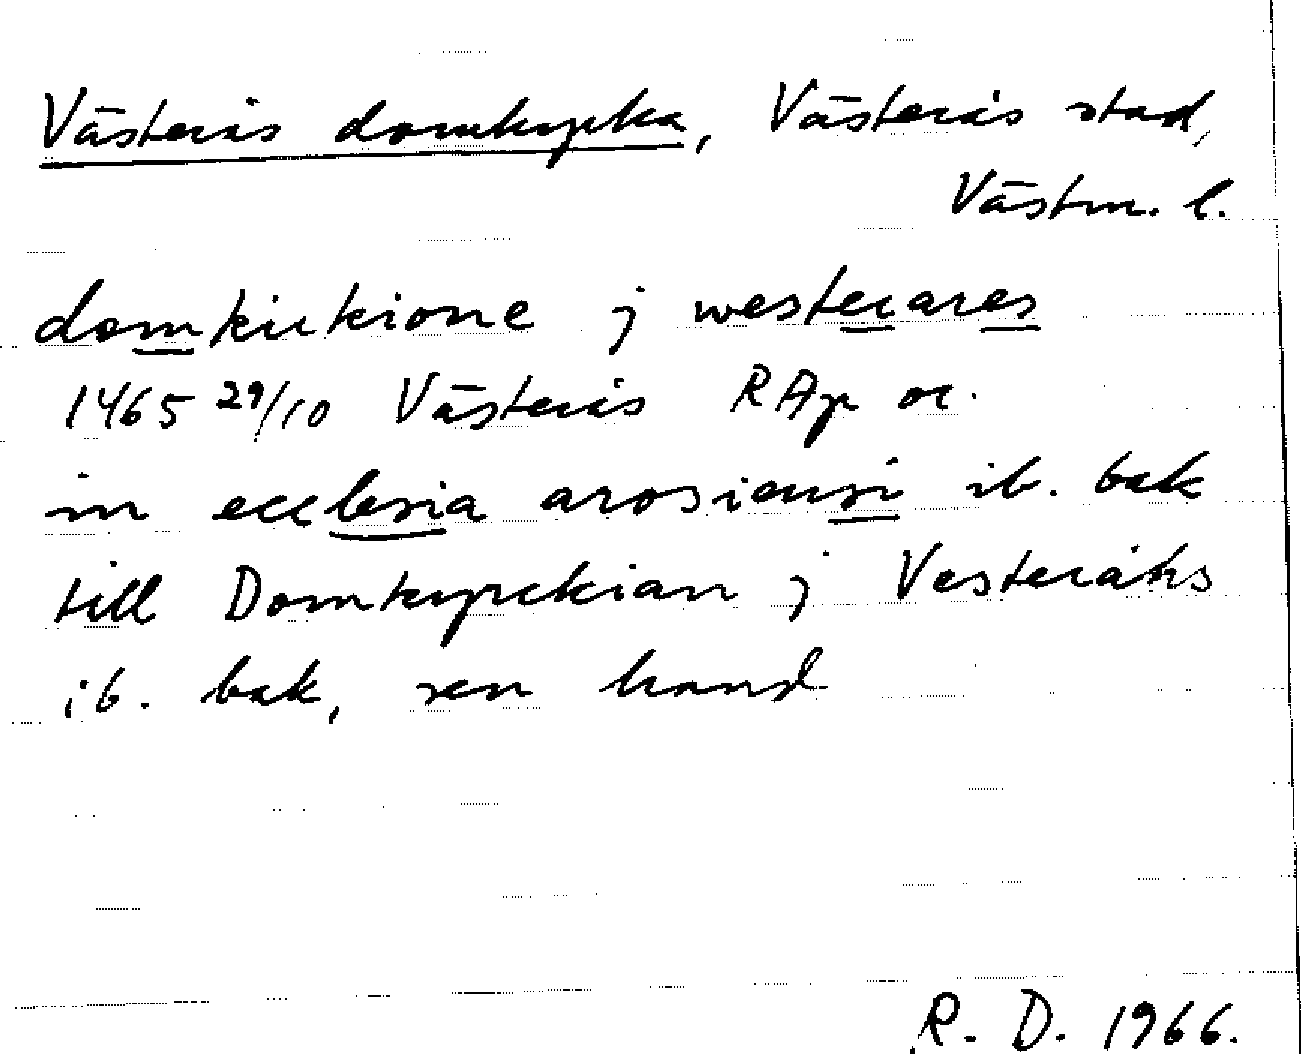 Västerås domkyrka, Västerås stad,
Västm. l.
domkirkione j westerares
1465 29/10 Västerås RAp or.
in ecclesia arosiensi ib. bak
till Domkyrckian j Vesteråhs
ib. bak, sen hand
R. D. 1966.